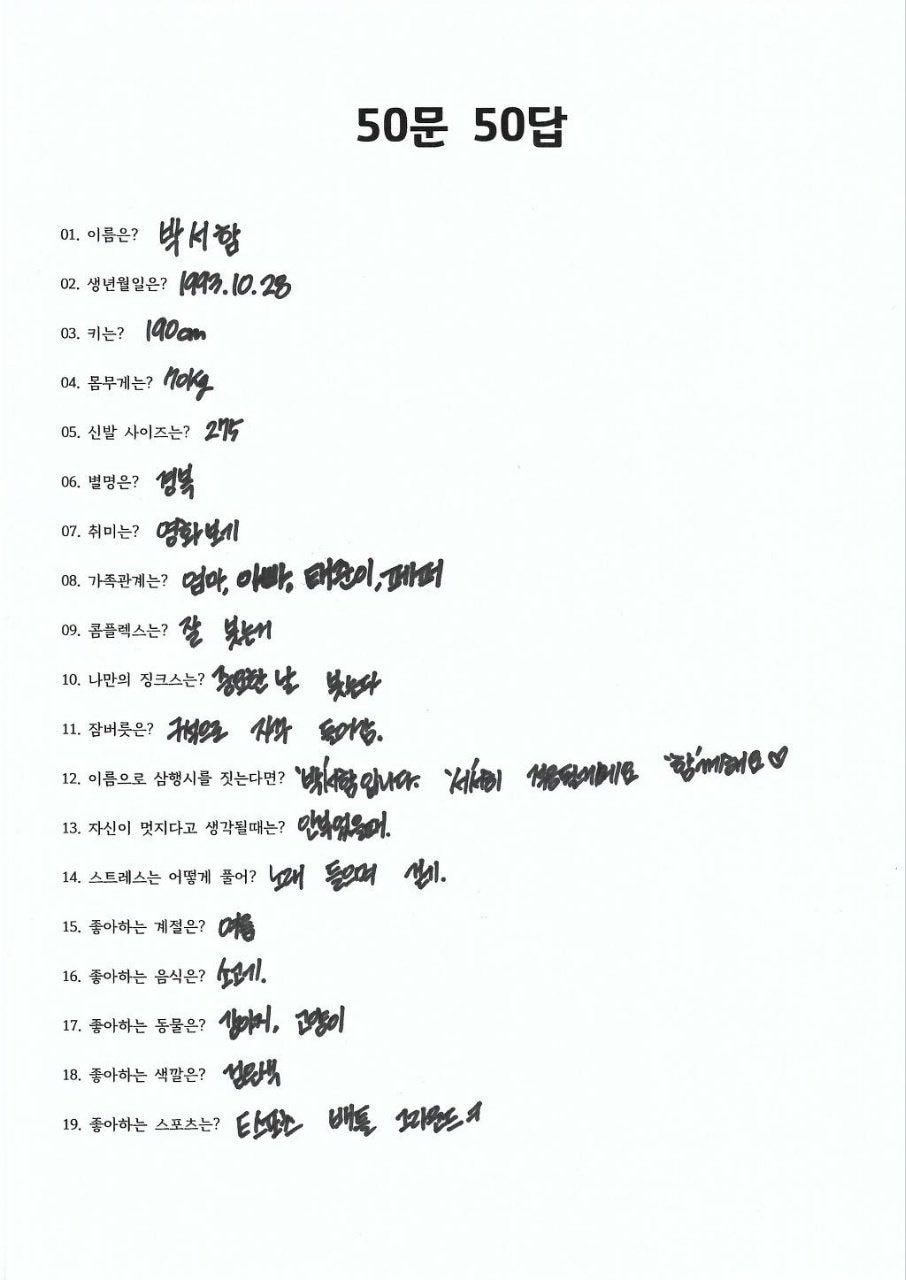 50문 50답
01. 이름은? 박서함
02. 생년월일은? 1993.10.28
03. 키는? 190cm
04. 몸무게는? 70kg
05. 신발 사이즈는? 275
06. 별명은? 경복
07. 취미는? 영화보기
08. 가족관계는? 엄마, 아빠, 태순이, 페퍼
09. 콤플렉스는? 잘 붓는거
10. 나만의 징크스는? 중요한 날 붓는다
11. 잠버릇은? 구석으로 자꾸 들어감.
12. 이름으로 삼행시를 짓는다면? '박'서함입니다. '서'서히 '함'께해요♡
13. 자신이 멋지다고 생각될때는? 안부었을때.
14. 스트레스는 어떻게 풀어? 노래 들으며
15. 좋아하는 계절은? 여름
16. 좋아하는 음식은? 소고기.
17. 좋아하는 동물은? 강아지, 고양이
18. 좋아하는 색깔은? 검은색
19. 좋아하는 스포츠는? E스포츠 배틀 그라운드